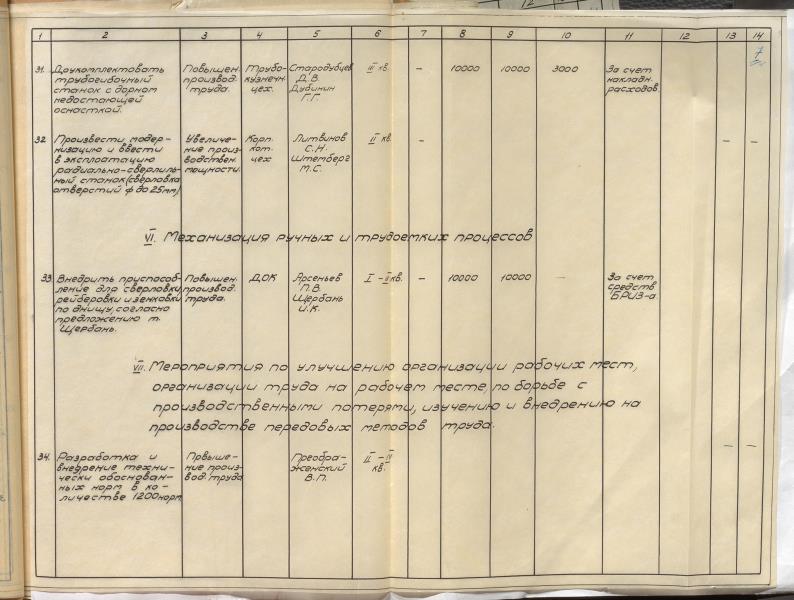 1 2 3 4 5 6 7 8 9 10 11 12 13 14
7
31. Доукомплектовать трубогибочный станок с дорном недостающей оснасткой.
Повышен. производ. труда.
Трубо-кузнечн. цех.
Стародубцев Д.В. Дубинин Г.Г.
III кв. – 10000 10000 3000
За счет накладн. расходов.
32 Произвести модер-
низацию и ввести
в эксплоатацию
радиально-сверлиль-
ный станок (сверловка
отверстий ф до 25мм)
Увеличе-
ние произ-
водствен.
мощности.
Корп.
кот.
цех
Литвинов
С.Н.
Штемберг
М.С.
II кв. – – –
VI. Механизация ручных и трудоемких процессов
33. Внедрить приспособ-
ление для сверловки,
рейберовки и зенковки
по днищу, согласно
предложению т.
Щербань.
Повышен.
производ.
труда.
ДОК
Арсеньев
П.В.
Щербань
И.К.
I – II кв. – 10000 10000 –
За счет
средств
БРИЗ-а.
VII. Мероприятия по улучшению организации рабочих мест,
организации труда на рабочем месте, по борьбе с
производственными потерями, изучению и внедрению на
производстве передовых методов труда.
34. Разработка и
внедрение техни-
чески обоснован-
ных норм в ко-
личестве 1200 норм
Повыше-
ние произ-
вод. труда
Преобра-
женский
В.П.
II – IV
кв.
– –